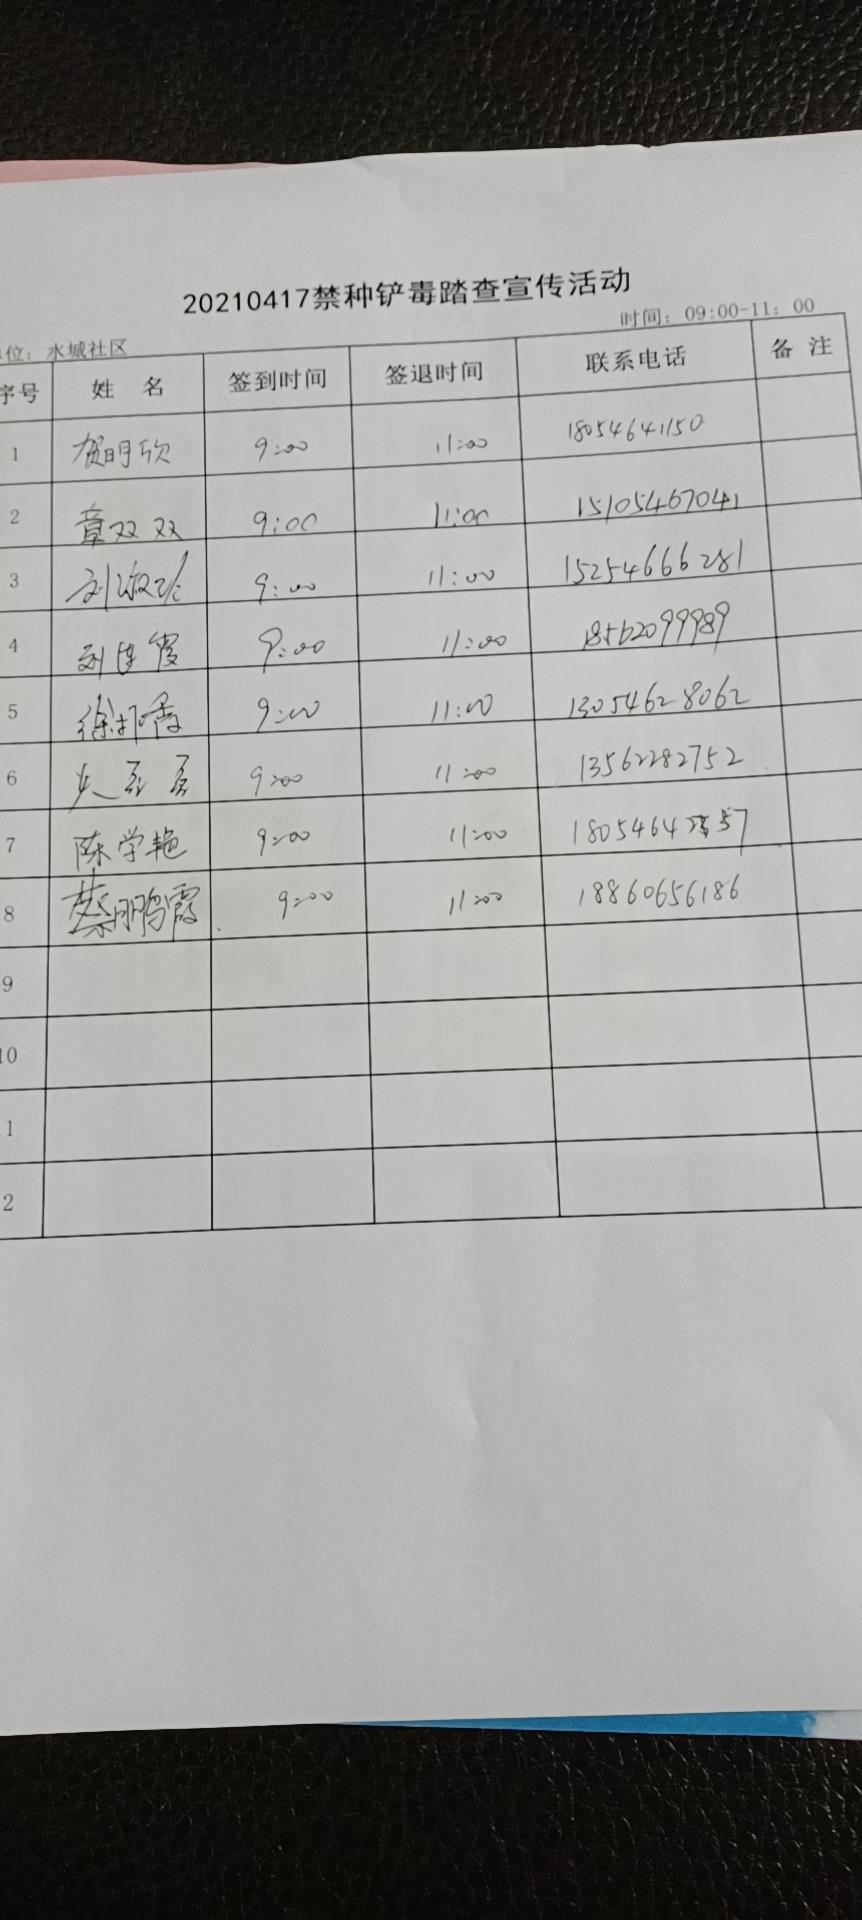 20210417禁种铲毒踏查宣传活动
时间：09:00-11：00
位：水城社区
序号 姓 名 签到时间 签退时间 联系电话 备 注
1 贺明欣 9:00 11:00 18054641150
2 章双双 9:00 11:00 15105467041
3 刘淑 9:00 11:00 15254666281
4 刘 霞 9:00 11:00 18562099989
5 徐 霞 9:00 11:00 13054628062
6 9:00 11:00 13562282752
7 陈学艳 9:00 11:00
8 蔡鹏霞 9:00 11:00 18860656186
9
10
1
2